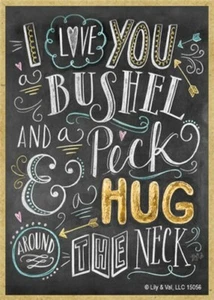 I LOVE YOU
a BUSHEL
AND a Peck
& a HUG
AROUND THE NECK
© Lily & Val, LLC 15056